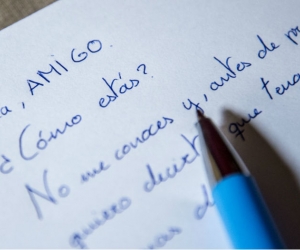 a, AMIGO.
¿Cómo estás?
No me conoces y, antes de
quiero decirt que ten